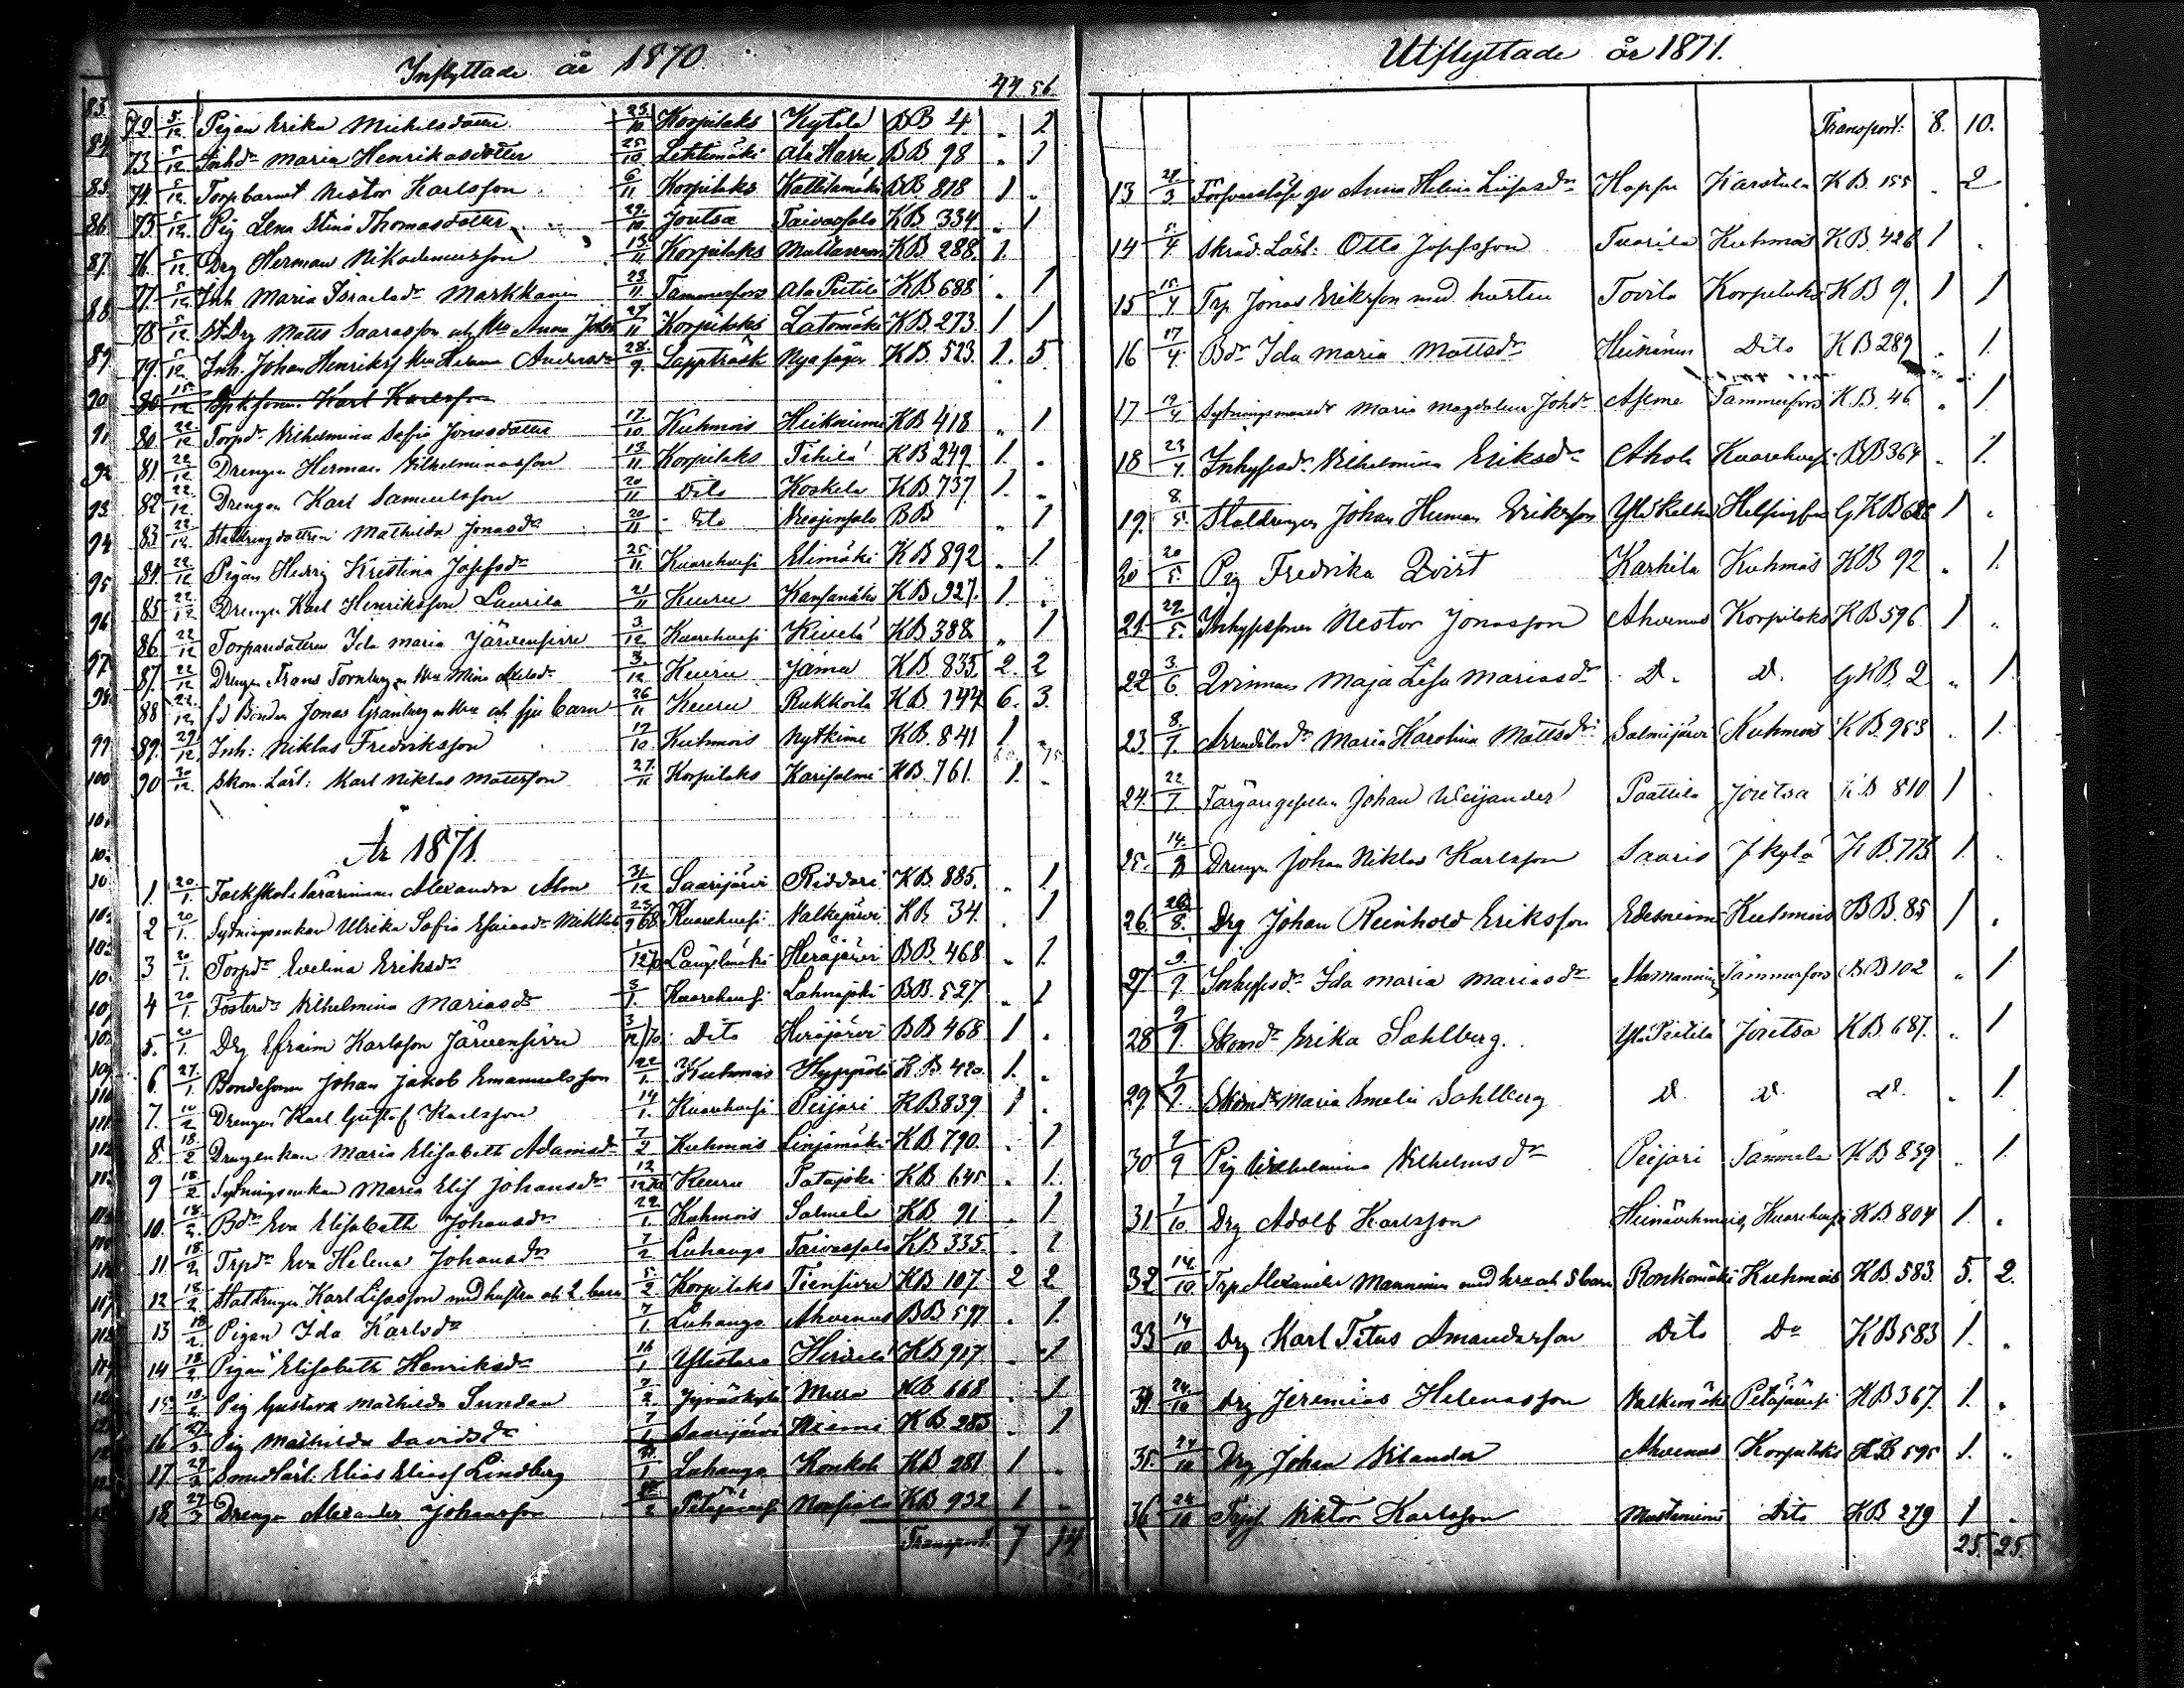 Inflyttade år 1870
44. 56.
72 5/12 Pigan Erika Michelsdotter 25/10 Korpilaks Kytela BB 4 „ 1
73 5/12 Inhdr Maria Henriksdotter 25/10 Lehtimäki Ala Harru BB 98 „ 1
74 5/12 Torpbarnet Nestor Karlsson 6/11 Korpilaks BB 818 1 „
75 5/12 Pig Lena Stina Thomasdotter 29/10 Joutsa Taivassalo KB 334 „ 1
76 5/12 Drg Herman Nikodemusson 13/11 Korpilaks KB 288 1
77 5/12 Inh Maria Israelsdr Markkanen 23/11 Tammerfors Ala Pietilä KB 688 „ 1
78 5/12 St.Drg Matts Saarasson och Hu Anna Johdr 27/11 Korpilaks Latomäki KB 273 1 1
79 5/12 Inh. Johan Henrikss Hu Helena Andersdr 28/9 Lappträsk Nya KB. 523. 1. 5.
80 15/12 Karl Karlsson
80 22/12 Torpdr Vilhelmina Sofia Jonasdotter 17/10 Kuhmois KB 418 „ 1
81 22/12 Drengen Herman Vilhelminasson 13/11 Korpilaks Tihilä KB 249 1. „
82 22/12 Drengen Karl Samuelsson 20/11 Dito Koskela KB 737 1. „
83 22/12 Statdrengdottren Mathilda Jonasdr 20/11 Dito BB „ 1
84 22/12 Pigan Hedvig Kristina Josefsdr 25/11 Kuorehvesi Elimäki KB 892 „ 1
85 22/12 Drengen Karl Henriksson Laurila 21/11 Keuru KB 927. 1 „
86 22/12 Torparedottren Ida Maria Järvensivu 3/12 Kuorehvesi Kivelä KB 388 „ 1
87. 22/12 Drengen Frans Tornberg 3/12 Keuru Jämsä KB. 835 2. 2
88 22/12 fd Bonden Jonas Granberg m Hu och sju barn 26/11 Keuru Rukkoila KB 744 6. 3.
89. 29/12 Inh: Niklas Fredriksson 17/10 Kuhmois KB. 841 1 „
90 30/12 Skom. Lärl: Karl Niklas Mattsson 27/11 Korpilaks Karisalmi KB. 761. 1. „
År 1871.
1. 20/1. Folkskolelärarinnan Alexandra Alm 31/12 Saarijärvi Riddari KB. 885. „ 1.
2 20/1. Sytningsenkan Ulrika Sofia Esaiasdr 25/9 68 Kuorehvesi Valkejärvi KB 34. „ 1
3 20/1. Torpdr Evelina Eriksdr 1/12 70 Längelmäki Heräjärvi BB. 468. „ 1.
4 20/1. Fosterdr Vilhelmina Mariasdr 3/1. Kuorehvesi Lahnajoki BB. 527 „ 1
5. 20/1. Drg Efraim Karlsson Järvensivu 3/12 70 Dito Heräjärvi BB 468 1 „
6 27/1. Bondesonen Johan Jakob Emanuelsson 22/1. Kuhmois Hyppölä KB. 420. 1. „
7. 10/2 Drengen Karl Gustaf Karlsson 14/1. Kuorehvesi Peijari KB 839 1 „
8. 18/2 Drengenkan Maria Elisabeth Adamsdr 7/2 Kuhmois Linjamäki KB 790. „ 1
9 18/2 Sytningsenkan Maria Elis Johansdr 12/12 70 Keuru Patajoki KB 645 „ 1.
10. 18/2. Bdr Eva Elisabeth Johansdr 22/1. Kuhmois Salmela KB 91 „ 1
11 18/2 Trpdr Eva Helena Johansdr 7/2 Luhango Taivassalo KB 335. „ 1
12 18/2. Statdrengen Karl Lisasson med hustru och 2 barn 5/2 Korpilaks Tiensivu KB 107. 2 2
13 18/2 Pigan Ida Karlsdr 7/1. Luhango Ahvenus BB 597 „ 1.
14 18/2 Pigan Elisabeth Henriksdr 16/1 Ylistaro Hirvelä KB 917. „ 1
15 18/2 Pig Gustava Mathilda Sundén 7/2 Jyväskylä KB 668 „ 1
16 27/2 Pig Mathilda Davidsdr 7/1 Saarijärvi Niemi KB 285 „ 1
17 27/2 Smedlärl: Elias Eliass Lindberg 31/1 Luhango Konkola KB 281 1 „
18 27/2 Drengen Alexander Johansson 2 Petäjävesi KB 932 1 „
Transport. 7 14
Utflyttade år 1871.
Transport: 8. 10.
13 28/3 Försvarslösa qv Anna Helena Lisasdr Hoppu Karstula KB. 155 „ 2
14 5/4 Skräd. Lärl: Otto Josefsson Tuorila Kuhmois KB. 426 1 „
15 15/4 Trp Jonas Eriksson med hustru Tovila Korpilaks KB 9. 1 1
16 17/4. Bdr Ida Maria Mattsdr Heinänen Dito KB 289 „ 1.
17 19/4 Sytningsmansdr Maria Magdalena Johdr Tammerfors KB. 46 „ 1.
18 23/4. Inhysesdr Vilhelmina Eriksdr Ahola Kuorehvesi BB 364 „ 1.
19. 8./5. Statdrengen Johan Herman Eriksson Helsingfors GKB 1 „
20 20/5. Pig Fredrika Qvist Karhila Kuhmois KB 92 „ 1.
21. 29./5. Inhysessonen Nestor Jonasson Ahvenus Korpilaks KB 596 1 „
22 3./6. Qvinnan Maja Lisa Mariasdr D. D. GKB. 2 „ 1.
23. 8./7. Arrendatordr Maria Karolina Mattsdr Salmijärvi Kuhmois KB. 953 „ 1.
24. 22/7 Färgaregesellen Johan Weijander Paattila Joutsa KB 810 1
25. 14./8 Drengen Johan Niklas Karlsson Saaris Jkylä KB. 775 1. „
26. 26./8. Drg Johan Reinhold Eriksson Kuhmois BB. 85 1 „
27. 9./9. Inhysesdr Ida Maria Mariasdr Tammerfors BB 102 „ 1
28 9/9. Skomdr Erika Sahlberg. Yli Pietilä Joutsa KB. 687. „ 1
29. 9/9. Skomdr Maria Amalia Sahlberg D. D. D. „ 1.
30 9/9 Pig Vilhelmina Vilhelmsdr Peijari Tammela KB 839 „ 1.
31. 7/10. Drg Adolf Karlsson Kuorehvesi KB. 804 1. „
32 14./10. Trp Alexander Manninen med hu och 5 barn Ronkomäki Kuhmois KB. 583. 5. 2.
33 14/10 Drg Karl Titus Amandusson Dito Do KB 583 1. „
34. 24./10 Drg Jeremias Helenasson Valkemäki Petäjävesi KB 367. 1. „
35. 24/10 Drg Johan Vilander Ahvenus Korpilaks KB. 595 1. „
36 24/10 Trps Viktor Karlsson Mustaniemi Dito KB 279 1 „
25. 25.